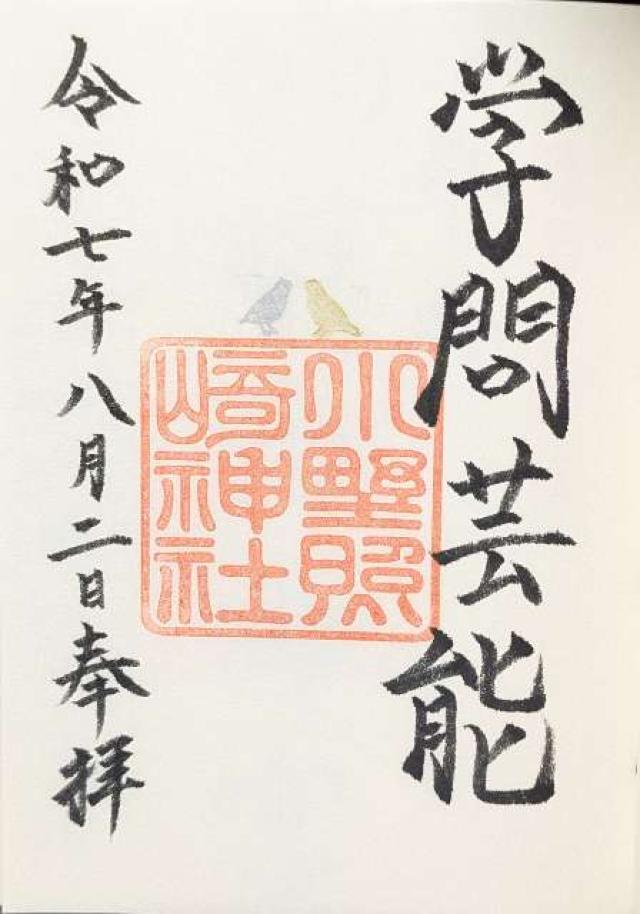 学問芸能
小野照
崎神社
令和七年八月二日奉拝